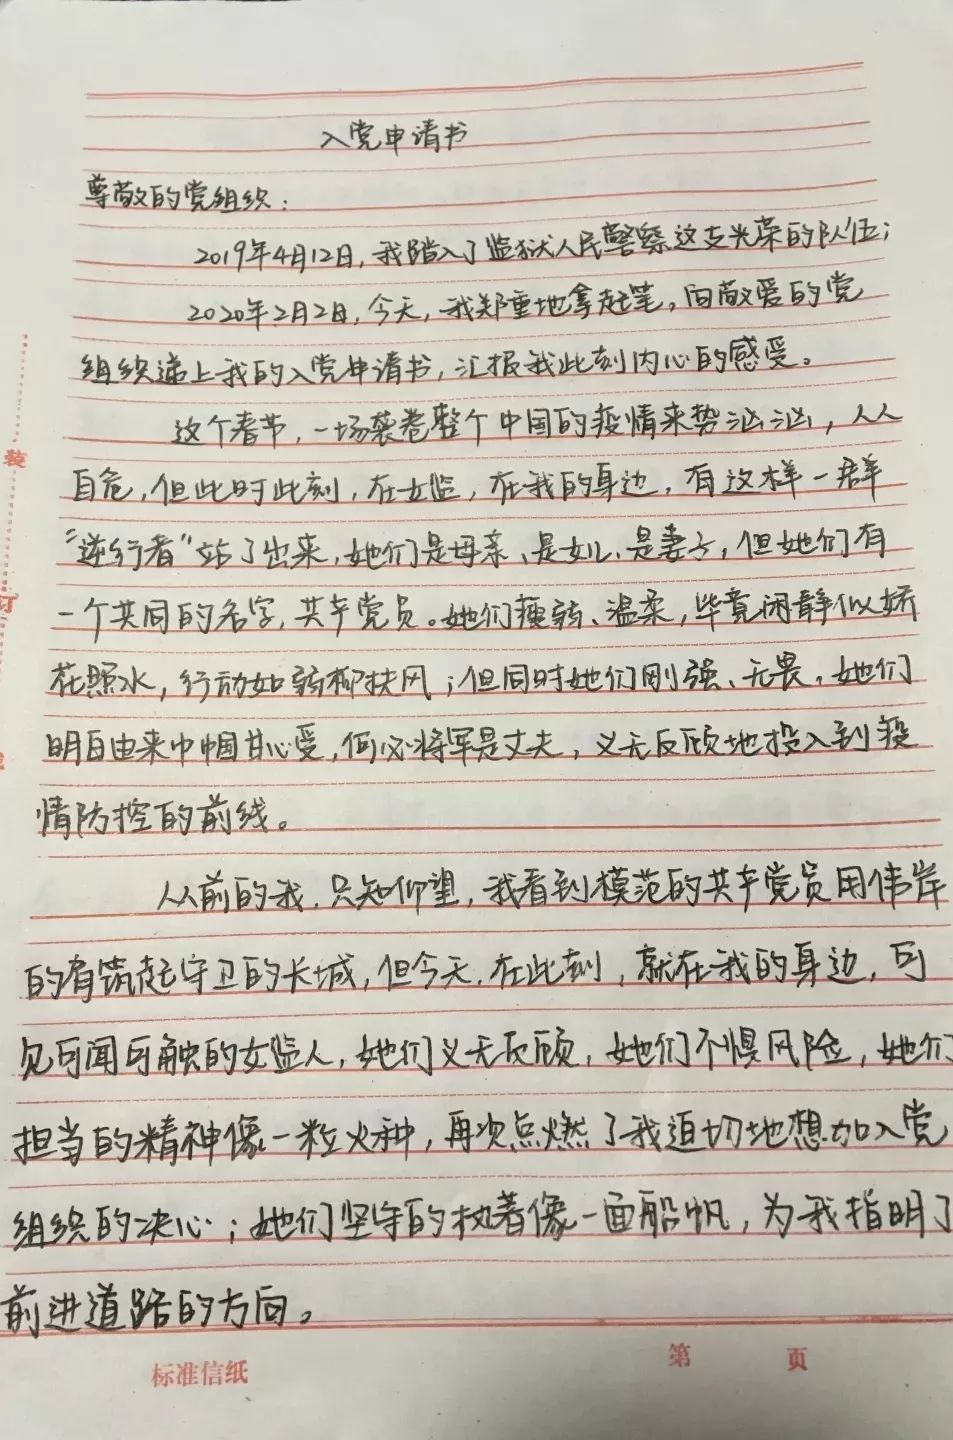 入党申请书
尊敬的党组织：
2019年4月12日，我踏入了监狱人民警察这支光荣的队伍；
2020年2月2日，今天，我郑重地拿起笔，向敬爱的党
组织递上我的入党申请书，汇报我此刻内心的感受。
这个春节，一场袭卷整个中国的疫情来势汹汹，人人
自危，但此时此刻，在女监，在我的身边，有这样一群
“逆行者”站了出来，她们是母亲、是女儿、是妻子，但她们有
一个共同的名字，共产党员。她们瘦弱、温柔，毕竟闲静似娇
花照水，行动如弱柳扶风；但同时她们刚强、无畏，她们
明自由来巾帼甘心受，何必将军是丈夫，义无反顾地投入到疫
情防控的前线。
从前的我，只知仰望，我看到模范的共产党员用伟岸
的肩筑起守卫的长城，但今天，在此刻，就在我的身边，可
见可闻可触的女监人，她们义无反顾，她们不惧风险，她们
担当的精神像一粒火种，再次点燃了我迫切地想加入党
组织的决心；她们坚守的执着像一面船帆，为我指明了
前进道路的方向。
装
订
标准信纸
第 页